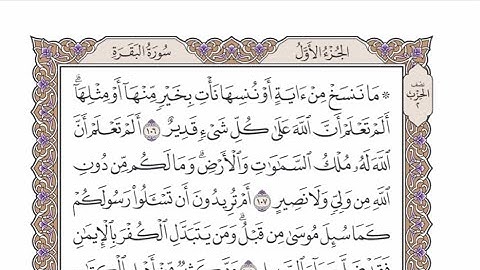 سُورَةُ البَقَرَةِ الجُزْءُ الأَوَّلُ
نصف
الحِزْب
۞ مَا نَنسَخْ مِنْ ءَايَةٍ أَوْ نُنسِهَا نَأْتِ بِخَيْرٍ مِّنْهَآ أَوْ مِثْلِهَآۗ
أَلَمْ تَعْلَمْ أَنَّ ٱللَّهَ عَلَىٰ كُلِّ شَىْءٍ قَدِيرٌ ١٠٦ أَلَمْ تَعْلَمْ أَنَّ
ٱللَّهَ لَهُۥ مُلْكُ ٱلسَّمَٰوَٰتِ وَٱلْأَرْضِۗ وَمَا لَكُم مِّن دُونِ
ٱللَّهِ مِن وَلِىٍّ وَلَا نَصِيرٍ ١٠٧ أَمْ تُرِيدُونَ أَن تَسْـَٔلُوا۟ رَسُولَكُمْ
كَمَا سُئِلَ مُوسَىٰ مِن قَبْلُۗ وَمَن يَتَبَدَّلِ ٱلْكُفْرَ بِٱلْإِيمَٰنِ